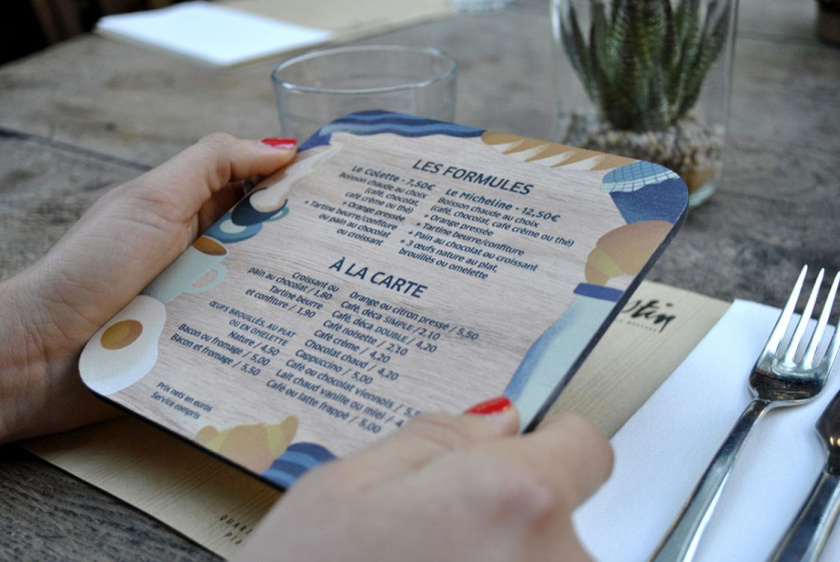 LES FORMULES
Le Colette - 7,50€
Boisson chaude au choix
(café, chocolat,
café crème ou thé)
+ Orange pressée
+ Tartine beurre/confiture
ou pain au chocolat
ou croissant
Le Micheline - 12,50€
Boisson chaude au choix
(café, chocolat, café crème ou thé)
+ Orange pressée
+ Tartine beurre/confiture
+ Pain au chocolat ou croissant
+ 3 œufs nature au plat,
brouillés ou omelette
À LA CARTE
Croissant ou
pain au chocolat / 1,80
Tartine beurre
et confiture / 1,90
ŒUFS BROUILLÉS, AU PLAT
OU EN OMELETTE
Nature / 4,50
Bacon ou fromage / 5,00
Bacon et fromage / 5,50
Orange ou citron pressé / 5,50
Café, déca SIMPLE / 2,10
Café, déca DOUBLE / 4,20
Café noisette / 2,10
Café crème / 4,20
Chocolat chaud / 4,20
Cappuccino / 5,00
Café ou chocolat viennois / 5,
Lait chaud vanille ou miel / 4,
Café ou latte frappé / 5,00
Prix nets en euros
Service compris